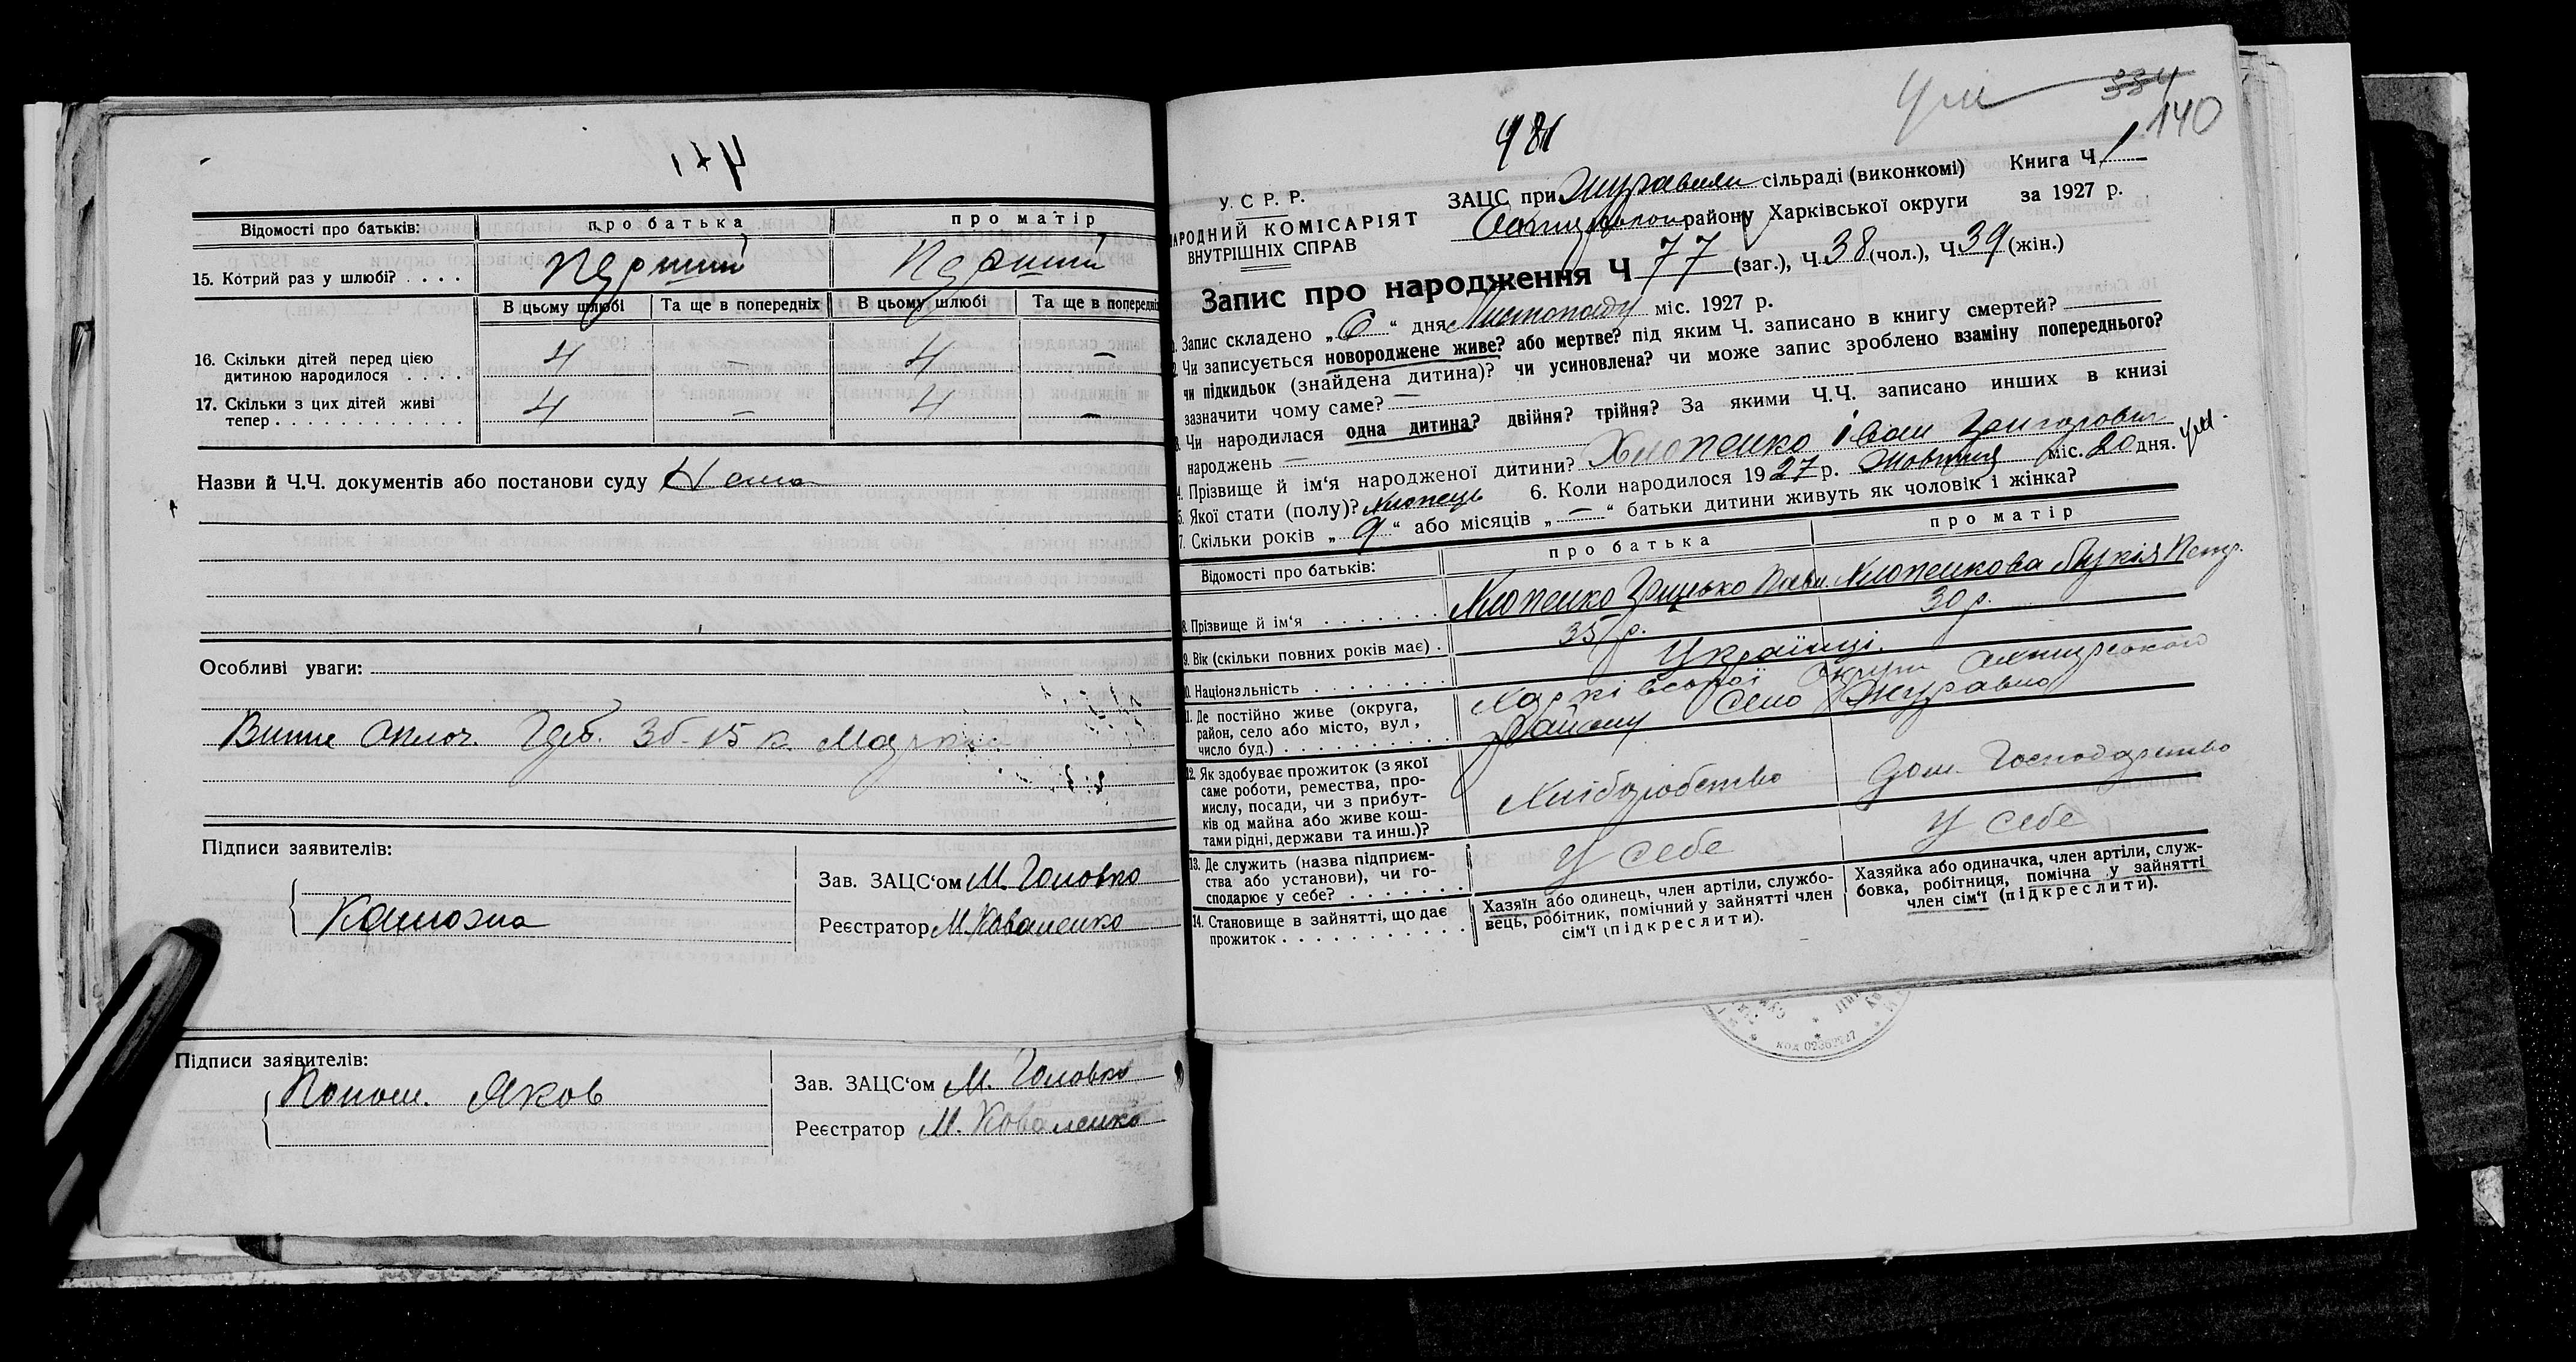 Відомості про батьків: про батька про матір
15. Котрий раз у шлюбі? . . . . Перший Перший
В цьому шлюбі Та ще в попередніх В цьому шлюбі Та ще в попередніх
16. Скільки дітей перед цією
дитиною народилося . . . . 4 — 4 —
17. Скільки з цих дітей живі
тепер . . . . . . . . . . . . 4 — 4 —
Назви й Ч.Ч. документів або постанови суду Нема
Особливі уваги:
Підписи заявителів:
Зав. ЗАЦС'ом М. Головко
Реєстратор М. Коваленко
Підписи заявителів:
Яков
Зав. ЗАЦС'ом М. Головко
Реєстратор М. Коваленко
334
140
481
У. С Р. Р.
НАРОДНИЙ КОМІСАРІЯТ
ВНУТРІШНІХ СПРАВ
ЗАЦС при Журавлян сільраді (виконкомі) Книга Ч 1
району Харківської округи за 1927 р.
Запис про народження Ч 77 (заг.), Ч. 38 (чол.), Ч. 39 (жін.)
1. Запис складено „6" дня Листопаду міс. 1927 р.
2. Чи записується новороджене живе? або мертве? під яким Ч. записано в книгу смертей?
чи підкидьок (знайдена дитина)? чи усиновлена? чи може запис зроблено взаміну попереднього?
зазначити чому саме? —
3. Чи народилася одна дитина? двійня? трійня? За якими Ч.Ч. записано инших в книзі
народжень —
4. Прізвище й ім'я народженої дитини? Хлопенко Іван Григорович
5. Якої стати (полу)? Хлопець 6. Коли народилося 1927 р. Жовтня міс. 20 дня.
7. Скільки років „9" або місяців „—" батьки дитини живуть як чоловік і жінка?
Відомості про батьків: про батька про матір
8. Прізвище й ім'я . . . . . . . Хлопенко Грицько Павл. Хлопенкова Лукія Петр.
9. Вік (скільки повних років має) . 35 р. 30 р.
10. Національність . . . . . . . . Українці.
11. Де постійно живе (округа,
район, село або місто, вул,
число буд.) . . . . . . . . . . . Харківської Округи Охтирського
Району Село Журавно
12. Як здобуває прожиток (з якої
саме роботи, ремества, про-
мислу, посади, чи з прибут-
ків од майна або живе кош-
тами рідні, держави та инш.)? Хліборобство Дом. Господарство
13. Де служить (назва підприєм-
ства або установи), чи го-
сподарює у себе? . . . . . . . . У себе У себе
14. Становище в зайнятті, що дає
прожиток . . . . . . . . . . . .
Хазяїн або одинець, член артіли, службо-
вець, робітник, помічний у зайнятті член
сім'ї (підкреслити).
Хазяйка або одиначка, член артіли, служ-
бовка, робітниця, помічна у зайнятті
член сім'ї (підкреслити).